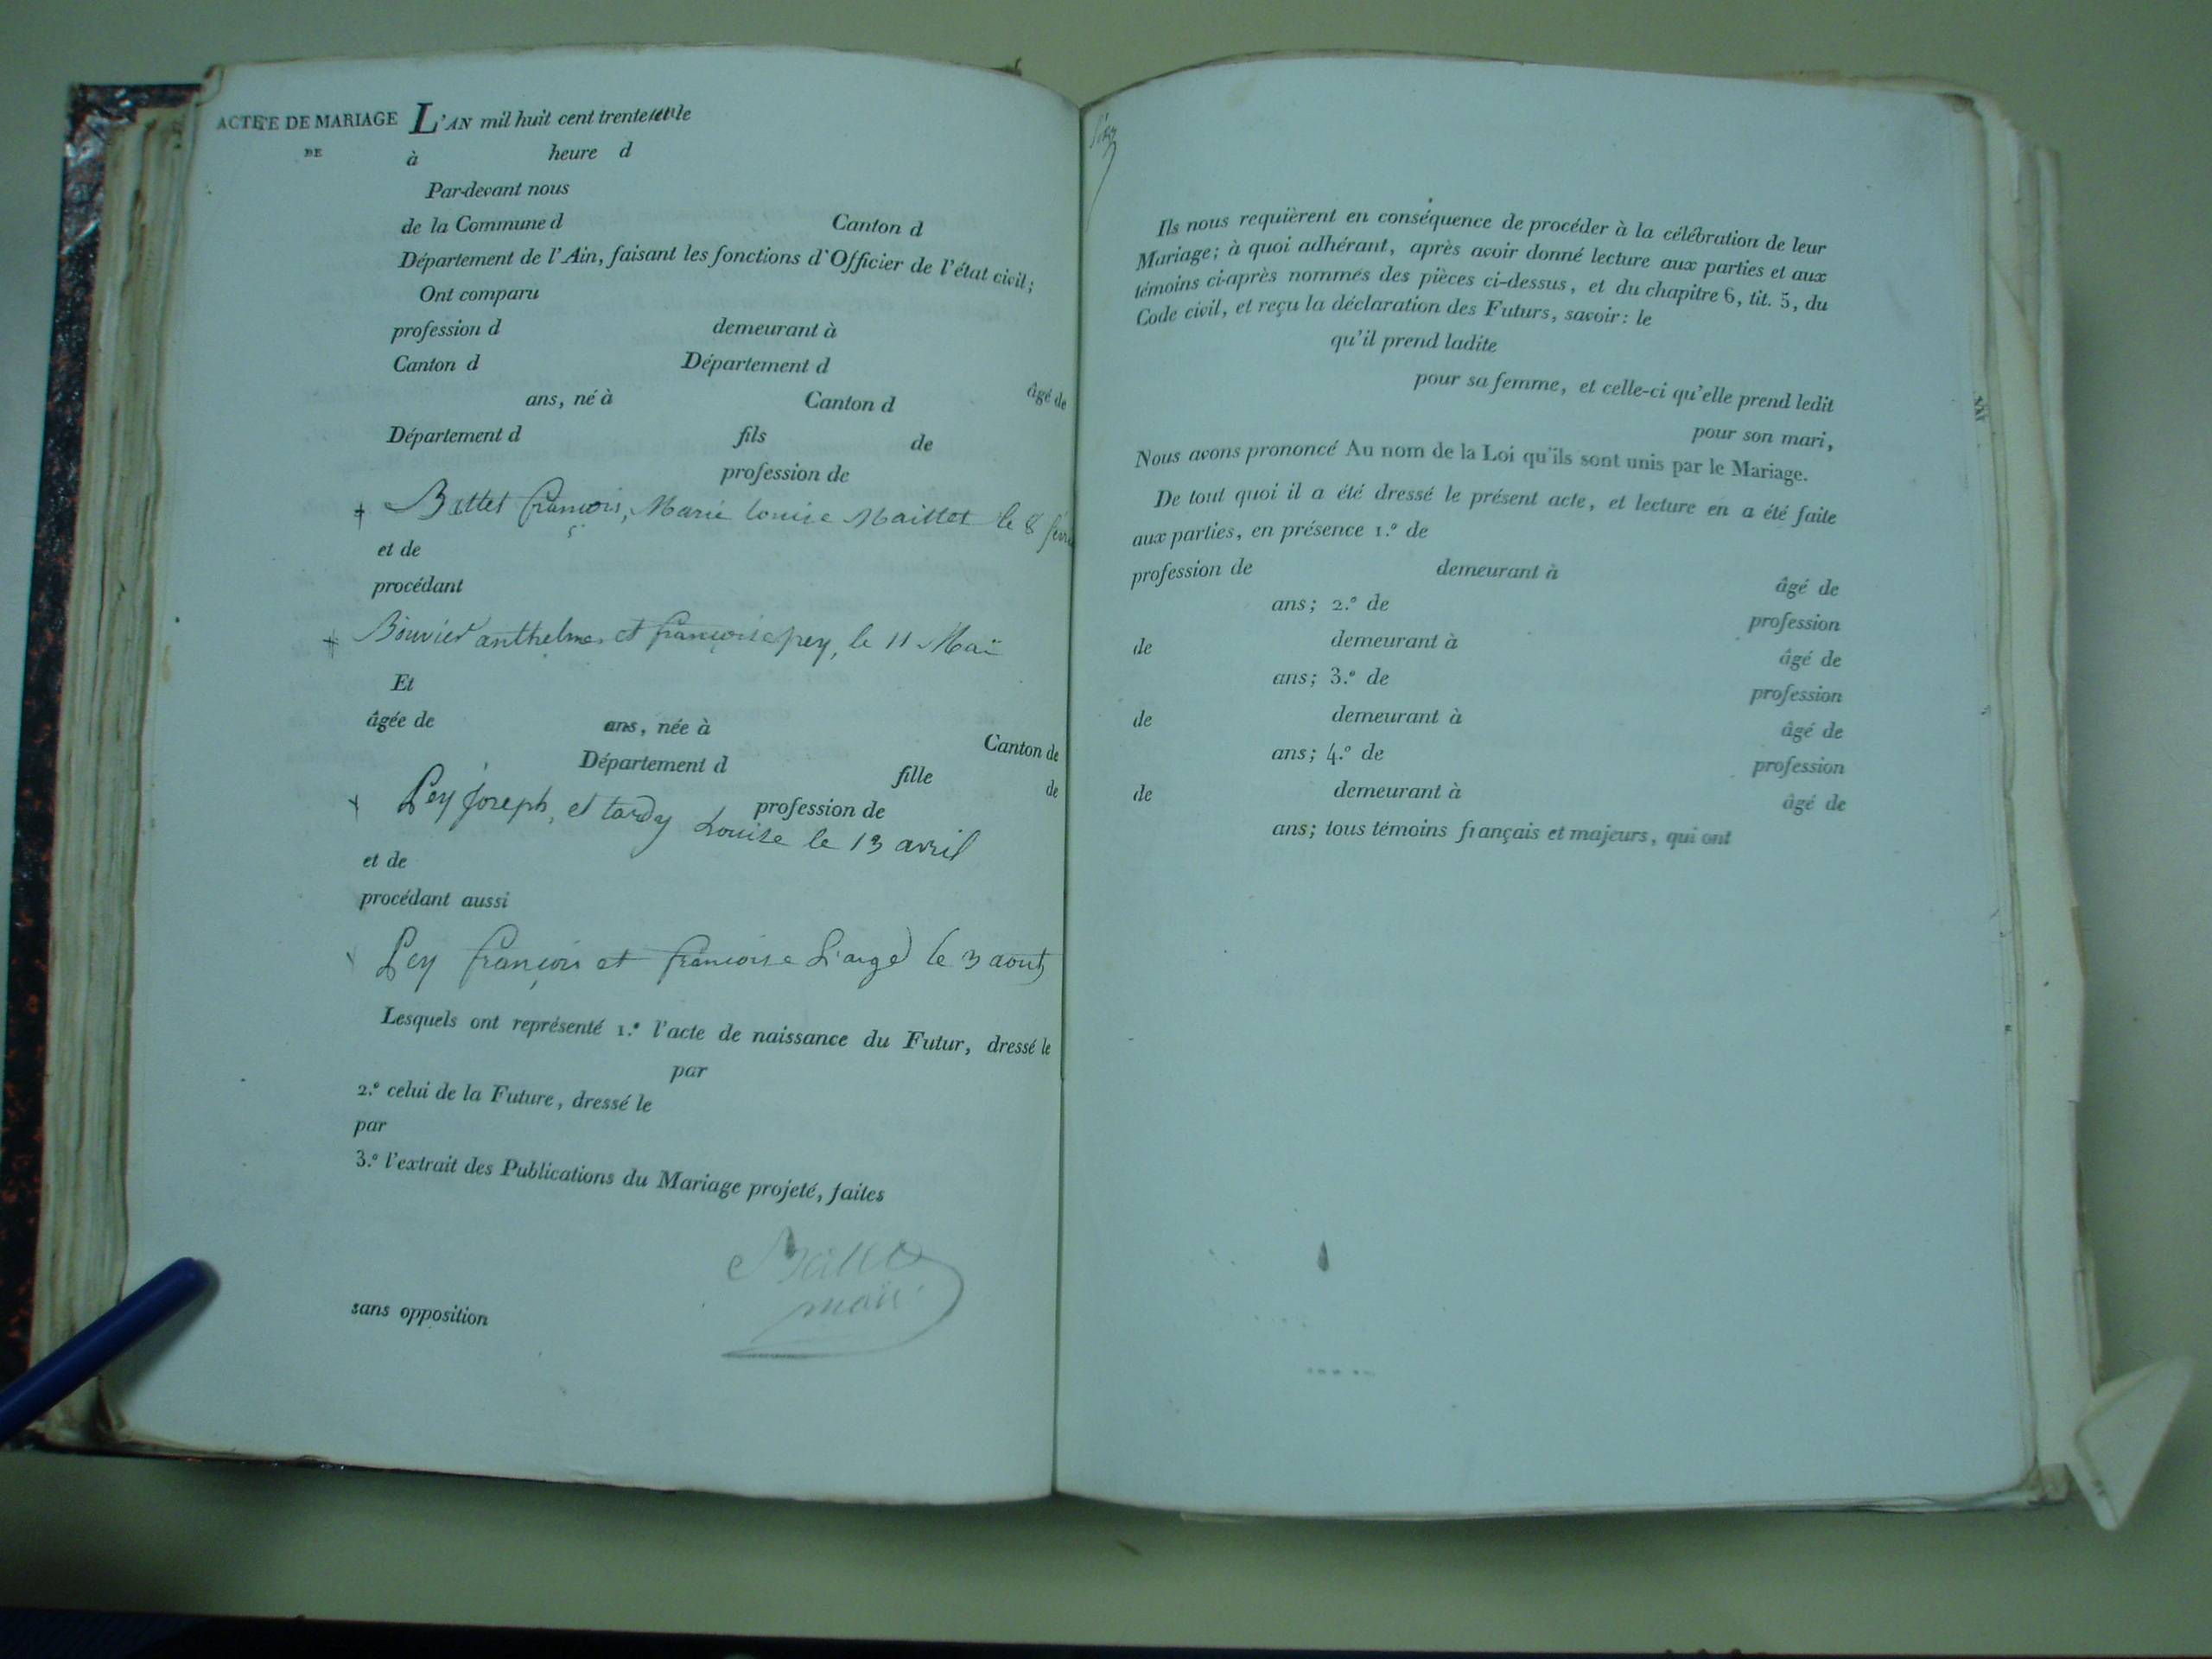 ACTE DE MARIAGE L'AN mil huit cent trente et le
DE à heure d
Par-devant nous
de la Commune d Canton d
Département de l'Ain, faisant les fonctions d'Officier de l'état civil;
Ont comparu
profession d demeurant à
Canton d Département d
âgé de
ans, né à Canton d
Département d fils de
profession de
Battet françois, Marie Louise Maittet le 8
et de
procédant
Bouvier anthelme et françoise pey, le 11 Mai
Et
âgée de ans, née à
Canton de
Département d fille de
profession de
Pey Joseph, et tardy Louise le 13 avril
et de
procédant aussi
Pey françois et françoise le 3 aout
Lesquels ont représenté 1.º l'acte de naissance du Futur, dressé le
par
2.º celui de la Future, dressé le
par
3.º l'extrait des Publications du Mariage projeté, faites
sans opposition
Ils nous requièrent en conséquence de procéder à la célébration de leur
Mariage; à quoi adhérant, après avoir donné lecture aux parties et aux
témoins ci-après nommés des pièces ci-dessus, et du chapitre 6, tit. 5, du
Code civil, et reçu la déclaration des Futurs, savoir: le
qu'il prend ladite
pour sa femme, et celle-ci qu'elle prend ledit
pour son mari,
Nous avons prononcé Au nom de la Loi qu'ils sont unis par le Mariage.
De tout quoi il a été dressé le présent acte, et lecture en a été faite
aux parties, en présence 1.º de
profession de demeurant à âgé de
ans; 2.º de profession
de demeurant à âgé de
ans; 3.º de profession
de demeurant à âgé de
ans; 4.º de profession
de demeurant à âgé de
ans; tous témoins français et majeurs, qui ont